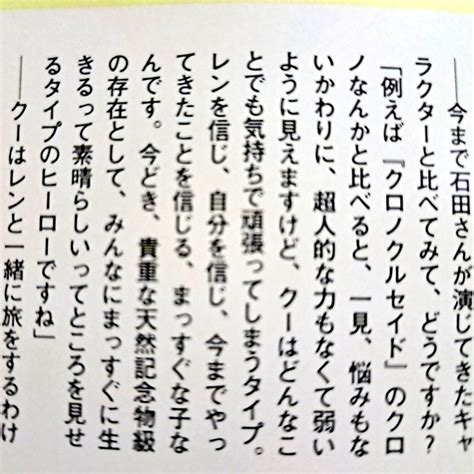 ――今まで石田さんが演じてきたキャ
ラクターと比べてみて、どうですか?
「例えば『クロノクルセイド』のクロ
ノなんかと比べると、一見、悩みもな
いかわりに、超人的な力もなくて弱い
ように見えますけど、クーはどんなこ
とでも気持ちで頑張ってしまうタイプ。
レンを信じ、自分を信じ、今までやっ
てきたことを信じる、まっすぐな子な
んです。今どき、貴重な天然記念物級
の存在として、みんなにまっすぐに生
きるって素晴らしいってところを見せ
るタイプのヒーローですね」
――クーはレンと一緒に旅をするわけ